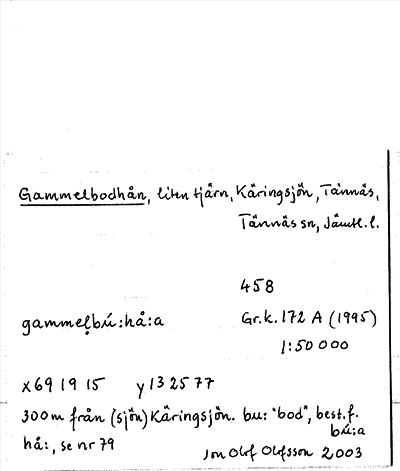 Gammelbodhån, liten tjärn, Käringsjön, Tännäs,
Tännäs sn, Jämtl.l.
458
gammeḷbú:hå:a Gr.k. 172 A (1995)
1:50 000
x 69 19 15 y 13 25 77
300 m från (sjön) Käringsjön. bu: "bod", best.f.
bú:a
hå:, se nr 79
Jon Olof Olofsson 2003